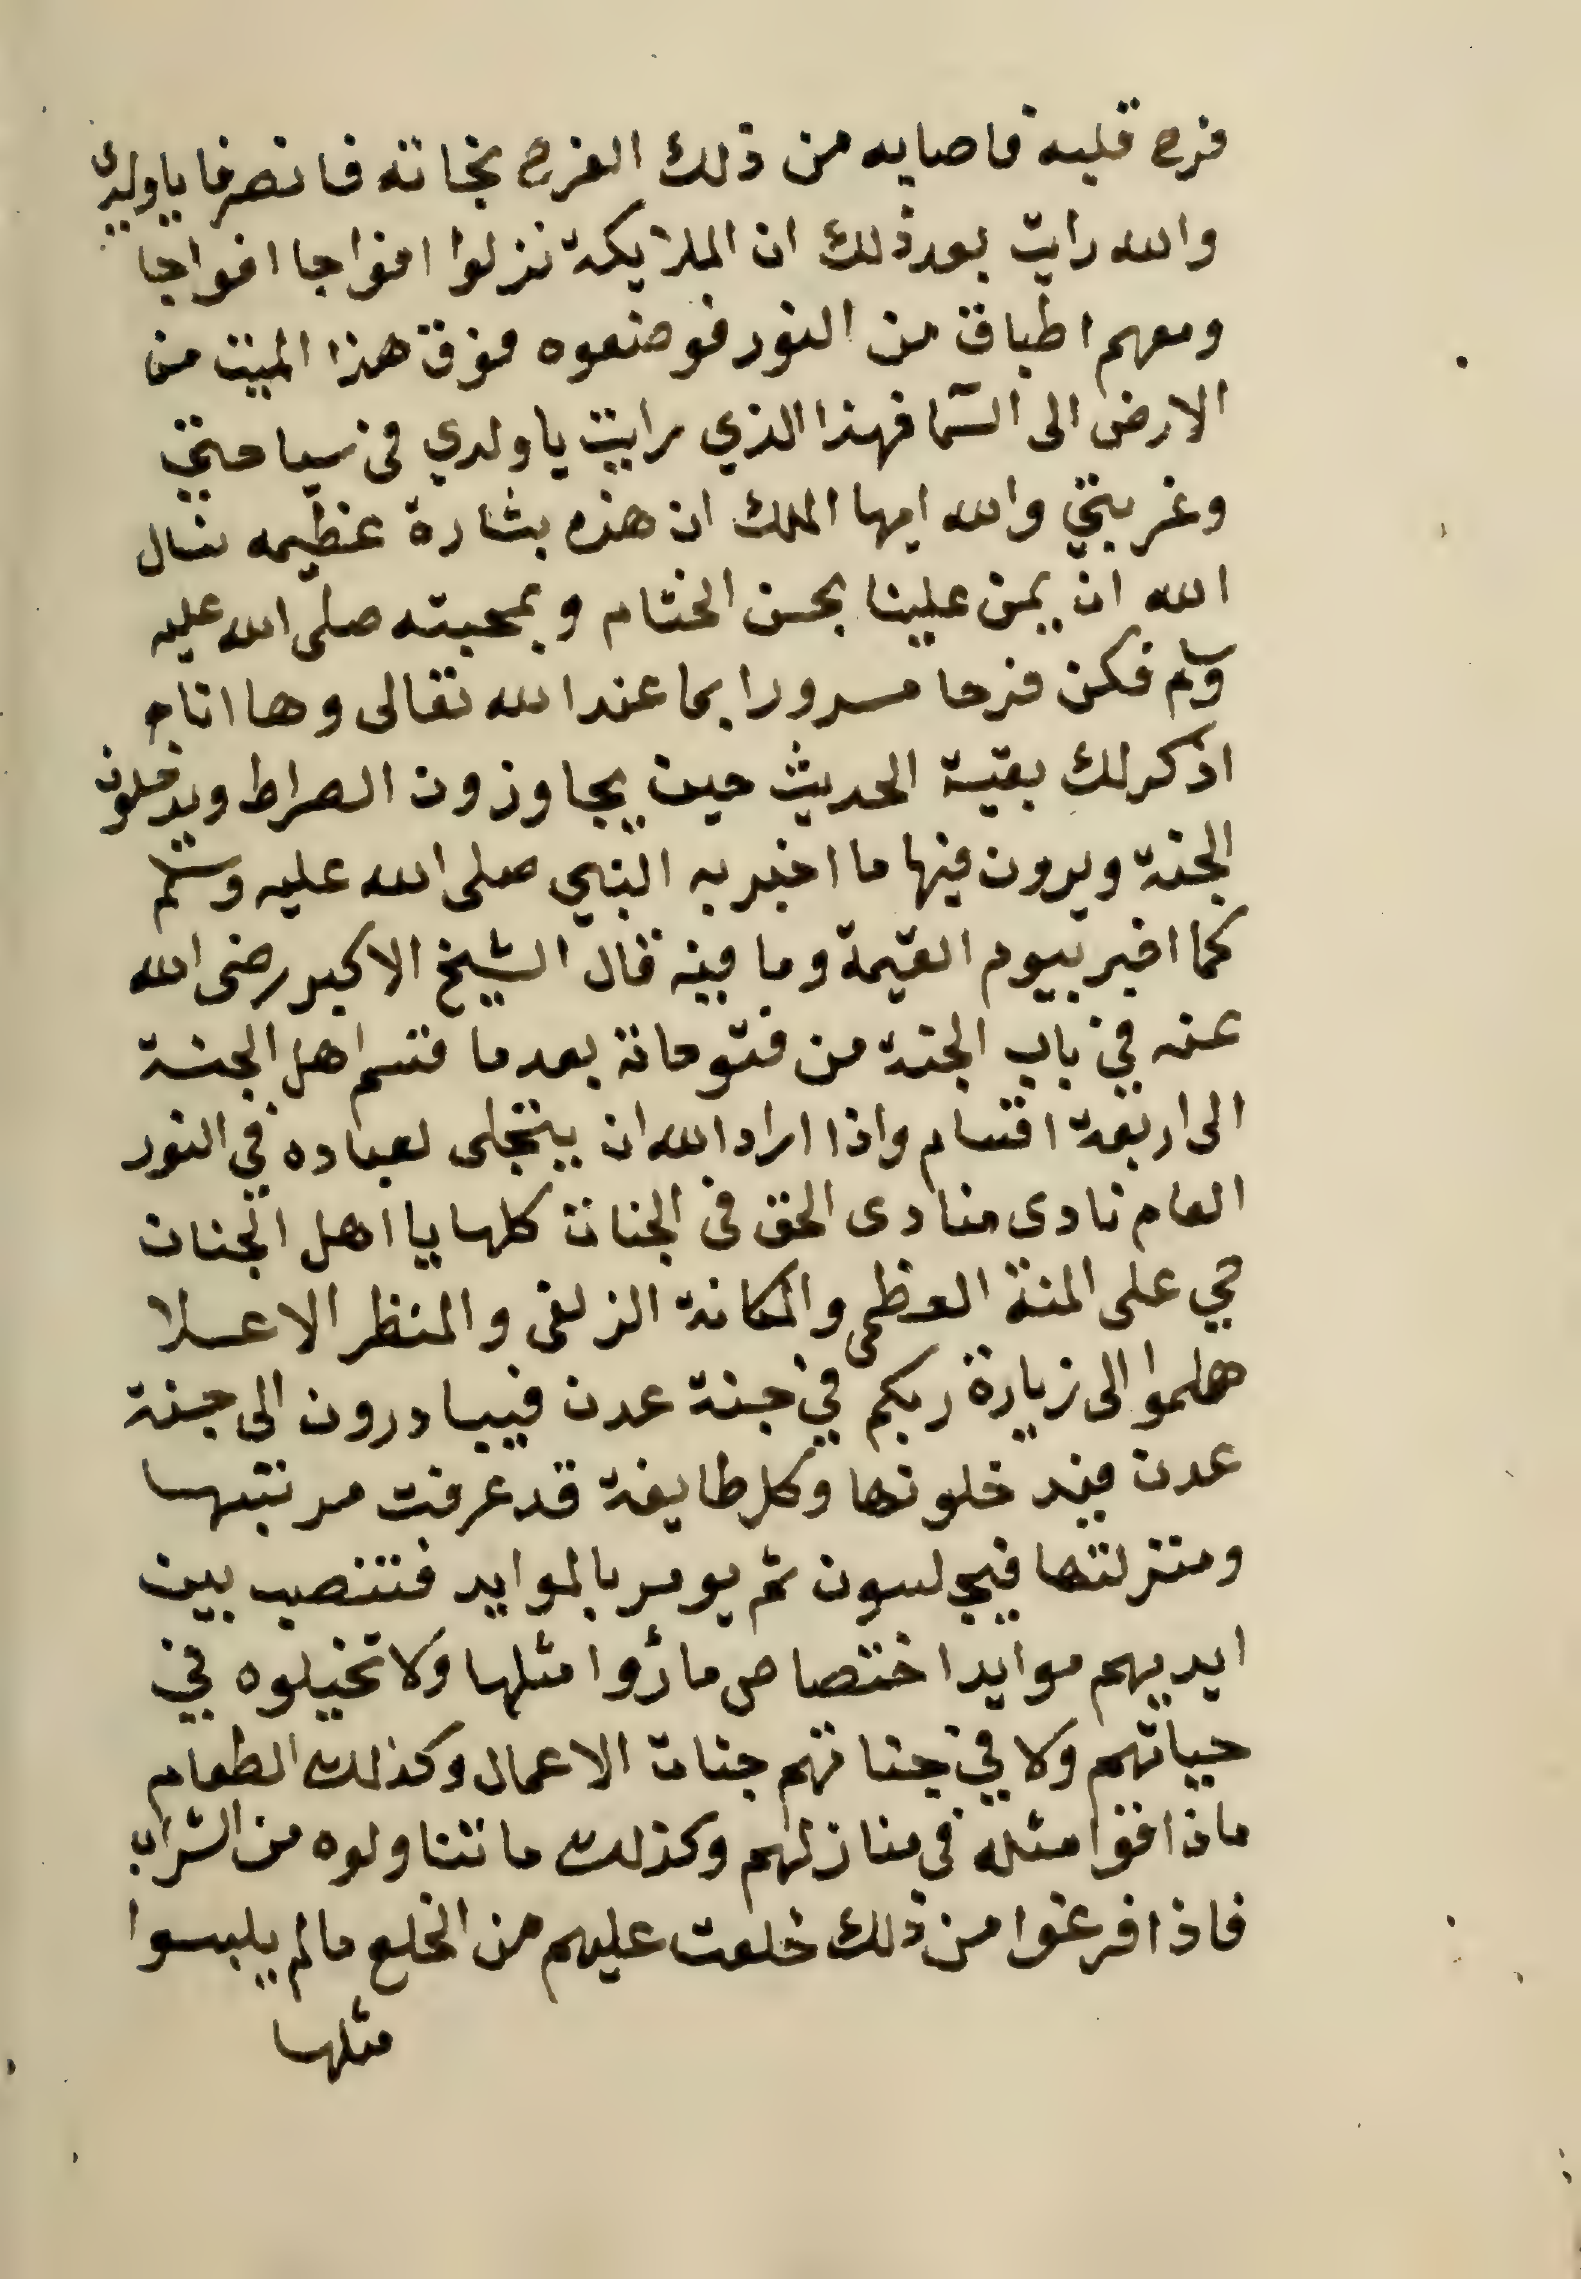 فرح قلبه فاصابه من ذلك الفرح نجاته فانصرفا ياولدي
والله رايت بعد ذلك ان الملايكة نزلوا افواجا افواجا
ومعهم اطباق من النور فوضعوه فوق هذا الميت من
الارض الى السما فهذا الذي رايت يا ولدي في سياحتي
وغربتي والله ايها الملك ان هذه بشارة عظيمه نسال
الله ان يمن علينا بحسن الختام وبمحبته صلى الله عليه
وسلم فكن فرحا مسرورا بما عند الله تعالى وها انا
اذكر لك بقية الحديث حين يجاوزون الصراط ويدخلون
الجنة ويرون فيها ما اخبر به النبي صلى الله عليه وسلم
كما اخبر بيوم القيمة وما فيه قال الشيخ الاكبر رضى الله
عنه في باب الجنة من فتوحاته بعد ما قسم اهل الجنة
الى اربعة اقسام واذا اراد الله ان يتجلى لعباده في النور
العام نادى منادى الحق في الجنات كلها يا اهل الجنات
حي على المنة العظمى والمكانة الزلفى والمنظر الاعلا
هلموا الى زيارة ربكم في جنة عدن فيبادرون الى جنة
عدن فيدخلونها وكل طايفة قد عرفت مرتبتها
ومنزلتها فيجلسون ثم يومر بالموايد فتنصب بين
ايديهم موايد اختصاص ما رأوا مثلها ولا تخيلوه في
حياتهم ولا في جناتهم جنات الاعمال وكذلك الطعام
ماذاقوا مثله في منازلهم وكذلك ما تناولوه من الشراب
فاذا فرغوا من ذلك خلعت عليهم من الخلع مالم يلبسوا
مثلها